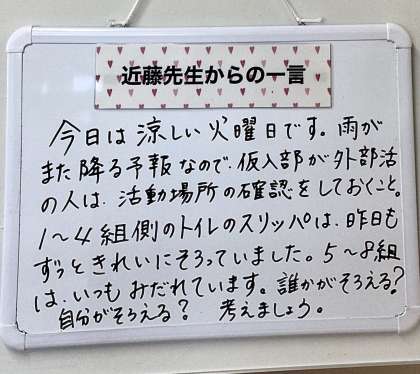 近藤先生からの一言
今日は涼しい火曜日です。雨が
また降る予報なので、仮入部が外部活
の人は、活動場所の確認をしておくこと。
1〜4組側のトイレのスリッパは、昨日も
ずっときれいにそろっていました。5〜8組
は、いつもみだれています。誰かがそろえる?
自分がそろえる? 考えましょう。